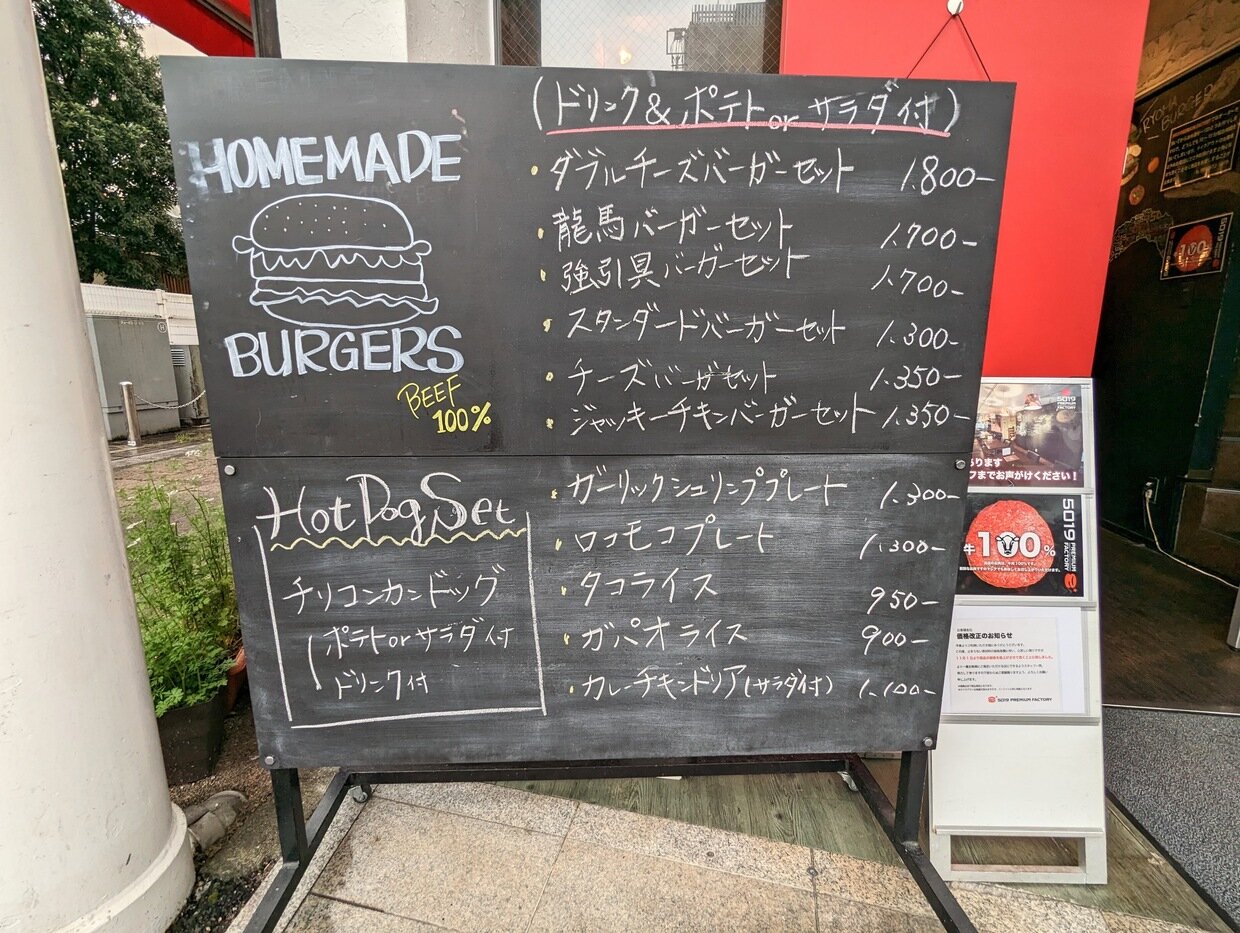 HOMEMADE
BURGERS
BEEF
100%
(ドリンク&ポテトorサラダ付)
・ダブルチーズバーガーセット 1.800-
・龍馬バーガーセット 1.700-
・強引具バーガーセット 1.700-
・スタンダードバーガーセット 1.300-
・チーズバーガーセット 1.350-
・ジャッキーチキンバーガーセット 1.350-
Hot Dog Set
チリコンカンドッグ
ポテトorサラダ付
ドリンク付
・ガーリックシュリンププレート 1.300-
・ロコモコプレート 1.300-
・タコライス 950-
・ガパオライス 900-
・カレーチキンドリア(サラダ付) 1.100-
5019
PREMIUM
FACTORY
あります
フまでお声がけください!
牛100%
5019 PREMIUM FACTORY
価格改正のお知らせ
5019 PREMIUM FACTORY
RYOMA
BURGER
100
5019